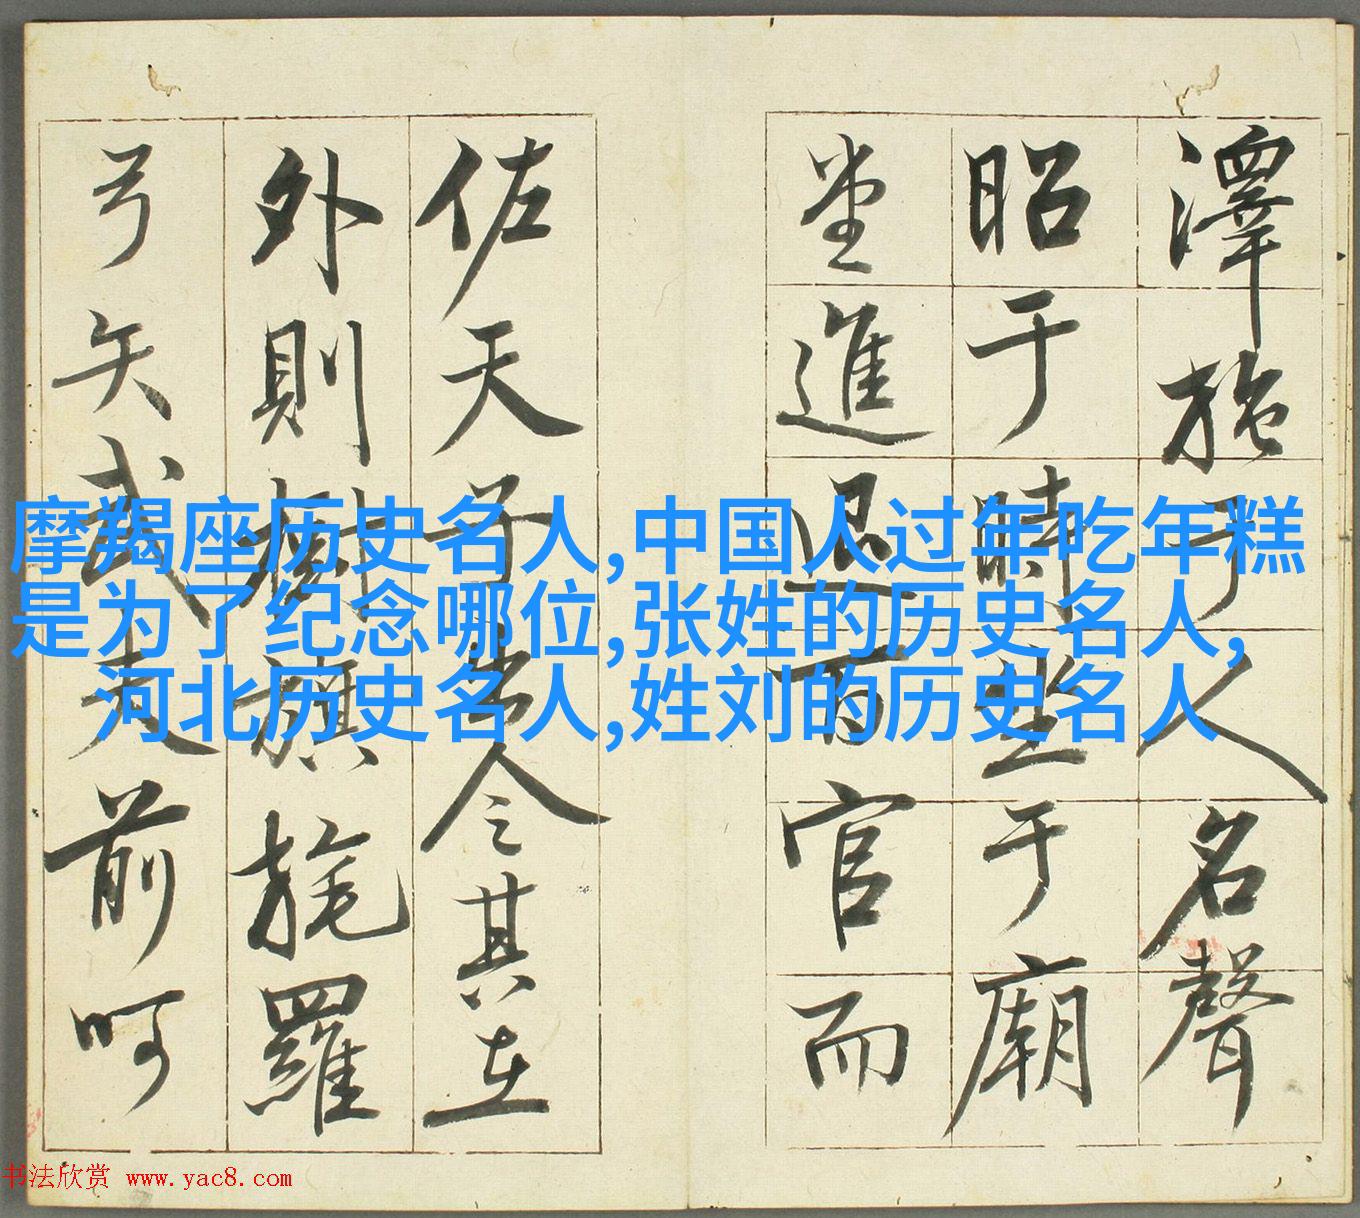 澤施于人名聲
昭于時坐于廟
堂進退百官而
佐天子出令其在
外則樹旗旄羅
弓矢武夫前呵
摩羯座历史名人,中国人过年吃年糕
是为了纪念哪位,张姓的历史名人,
河北历史名人,姓刘的历史名人
书法欣赏 www.yac8.com